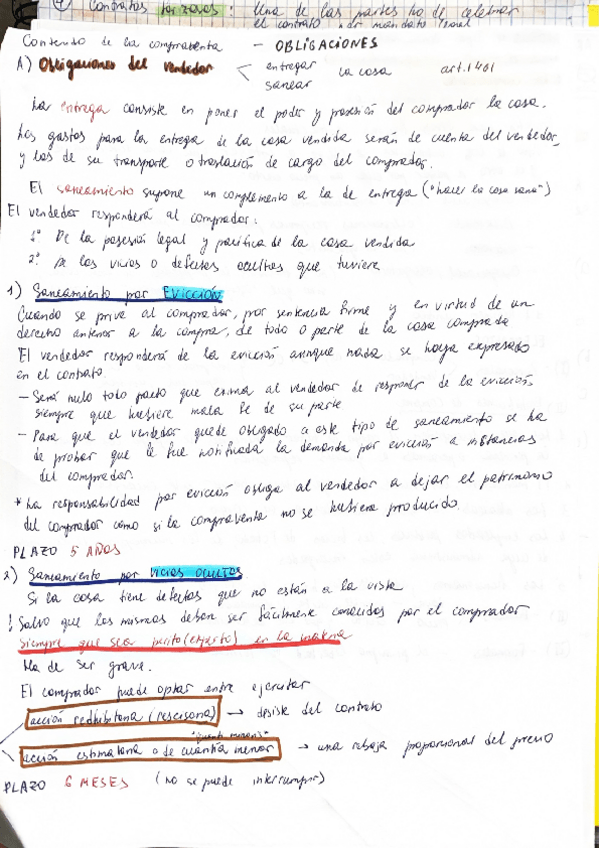 4) Contratos forzosos : Una de las partes ha de celebrar
el contrato por mandato legal
Contenido de la compraventa - OBLIGACIONES
A) Obligaciones del vendedor < entregar la cosa art. 1461
sanear
La entrega consiste en poner el poder y posesión del comprador la cosa.
Los gastos para la entrega de la cosa vendida serán de cuenta del vendedor,
y los de su transporte o traslación de cargo del comprador.
El saneamiento supone un complemento a la de entrega ("hacer la cosa sana")
El vendedor responderá al comprador:
1º De la posesión legal y pacífica de la cosa vendida
2º De los vicios o defectos ocultos que tuviere
1) Saneamiento por Evicción
Cuando se prive al comprador, por sentencia firme y en virtud de un
derecho anterior a la compra, de todo o parte de la cosa comprada
El vendedor responderá de la evicción aunque nada se haya expresado
en el contrato.
- Será nulo todo pacto que exima al vendedor de responder de la evicción,
siempre que hubiere mala fe de su parte
- Para que el vendedor quede obligado a este tipo de saneamiento se ha
de probar que le fue notificada la demanda por evicción a instancias
del comprador.
* La responsabilidad por evicción obliga al vendedor a dejar el patrimonio
del comprador como si la compraventa no se hubiera producido.
PLAZO 5 AÑOS
2) Saneamiento por vicios ocultos
Si la cosa tiene defectos que no están a la vista
! Salvo que los mismos deban ser fácilmente conocidos por el comprador
siempre que sea perito (experto) en la materia
Ha de ser grave.
El comprador puede optar entre ejercitar
acción redhibitoria (rescisoria) → desiste del contrato
"quanti minoris"
acción estimatoria o de cuantía menor → una rebaja proporcional del precio
PLAZO 6 MESES (no se puede interrumpir)